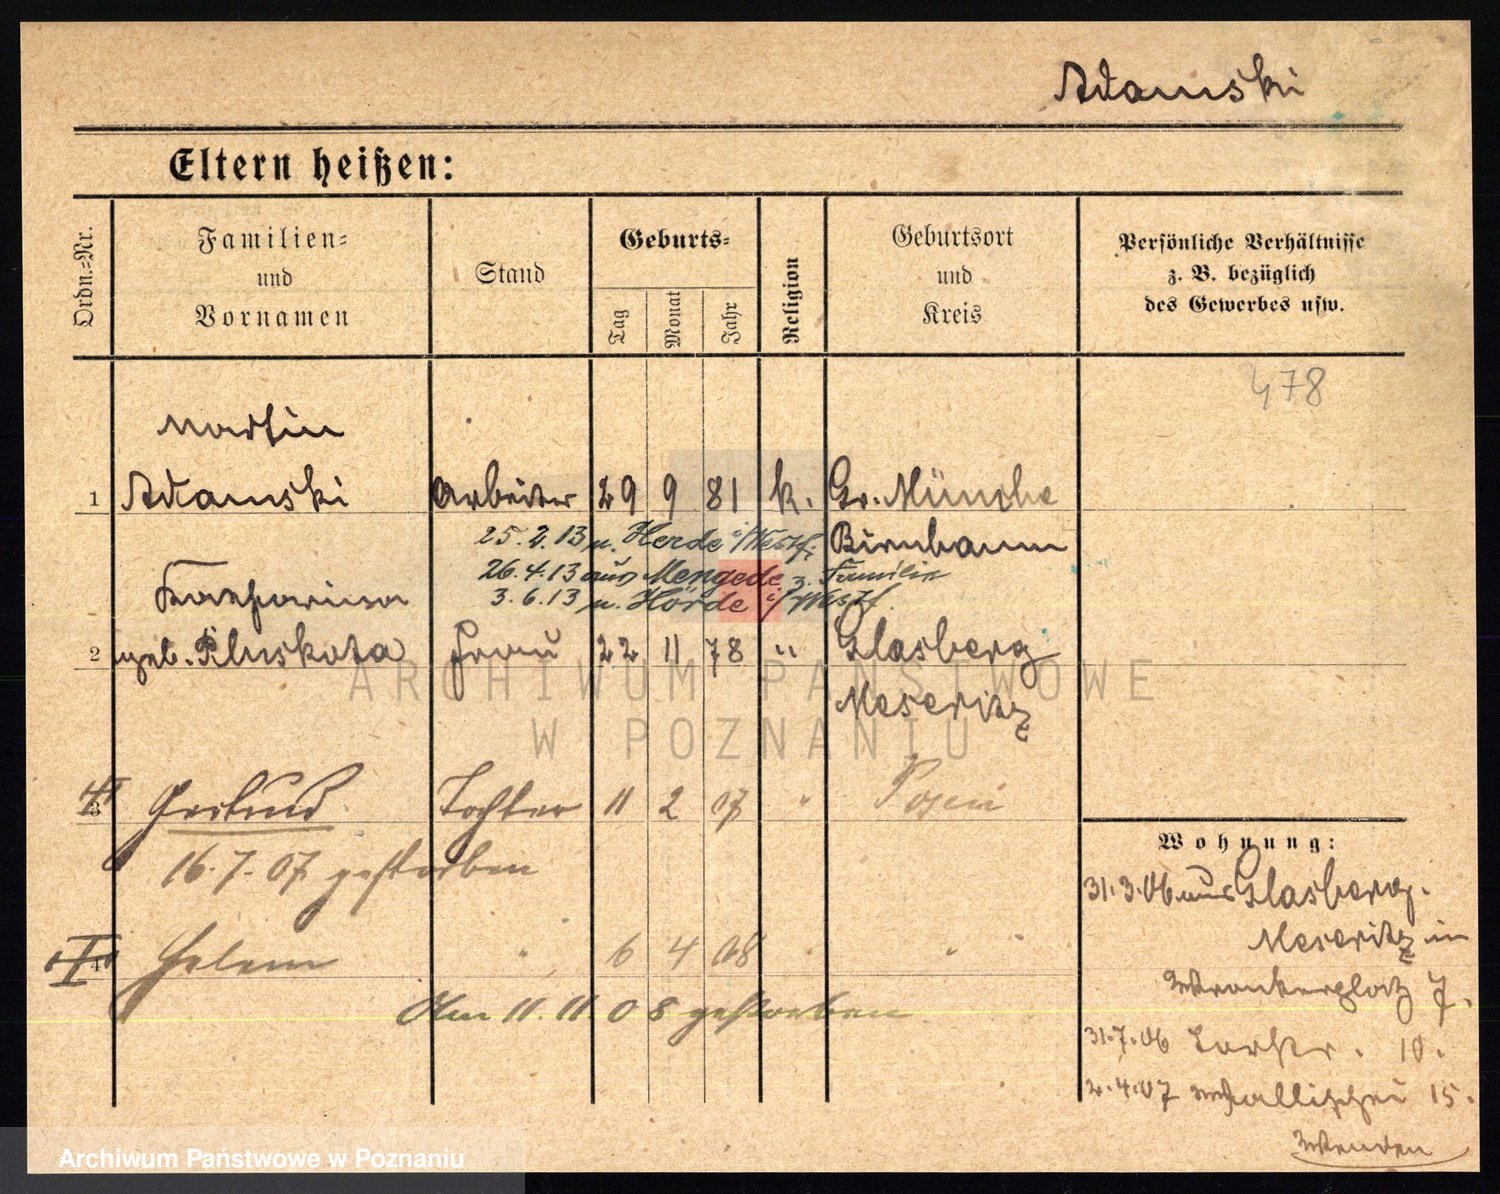 Adamski
Eltern heißen:
Ordn.-Nr.
Familien-
und
Vornamen
Stand
Geburts-
Tag
Monat
Jahr
Religion
Geburtsort
und
Kreis
Persönliche Verhältnisse
z. B. bezüglich
des Gewerbes usw.
478
Martin
1 Adamski Arbeiter 29 9 81 k. Gr. Münche
25.2.13 n. Herde i/Westf. Birnbaum
26.4.13 aus Mengede z. Familie
Katharina 3.6.13 n. Hörde i/Westf.
2 geb. Pluskota Frau 22 11 78 " Glasberg
Meseritz
ARCHIWUM PAŃSTWOWE
W POZNANIU
3 Gertrud Tochter 11 2 07 " Posen
16.7.07 gestorben
Wohnung:
31.3.06 aus Glasberg.
Meseritz in
4 Helene " 6 4 08 " "
Wronkerplatz 7.
Am 11.11.08 gestorben
31.7.06 10.
2.4.07 Wallischei 15.
Wenden
Archiwum Państwowe w Poznaniu